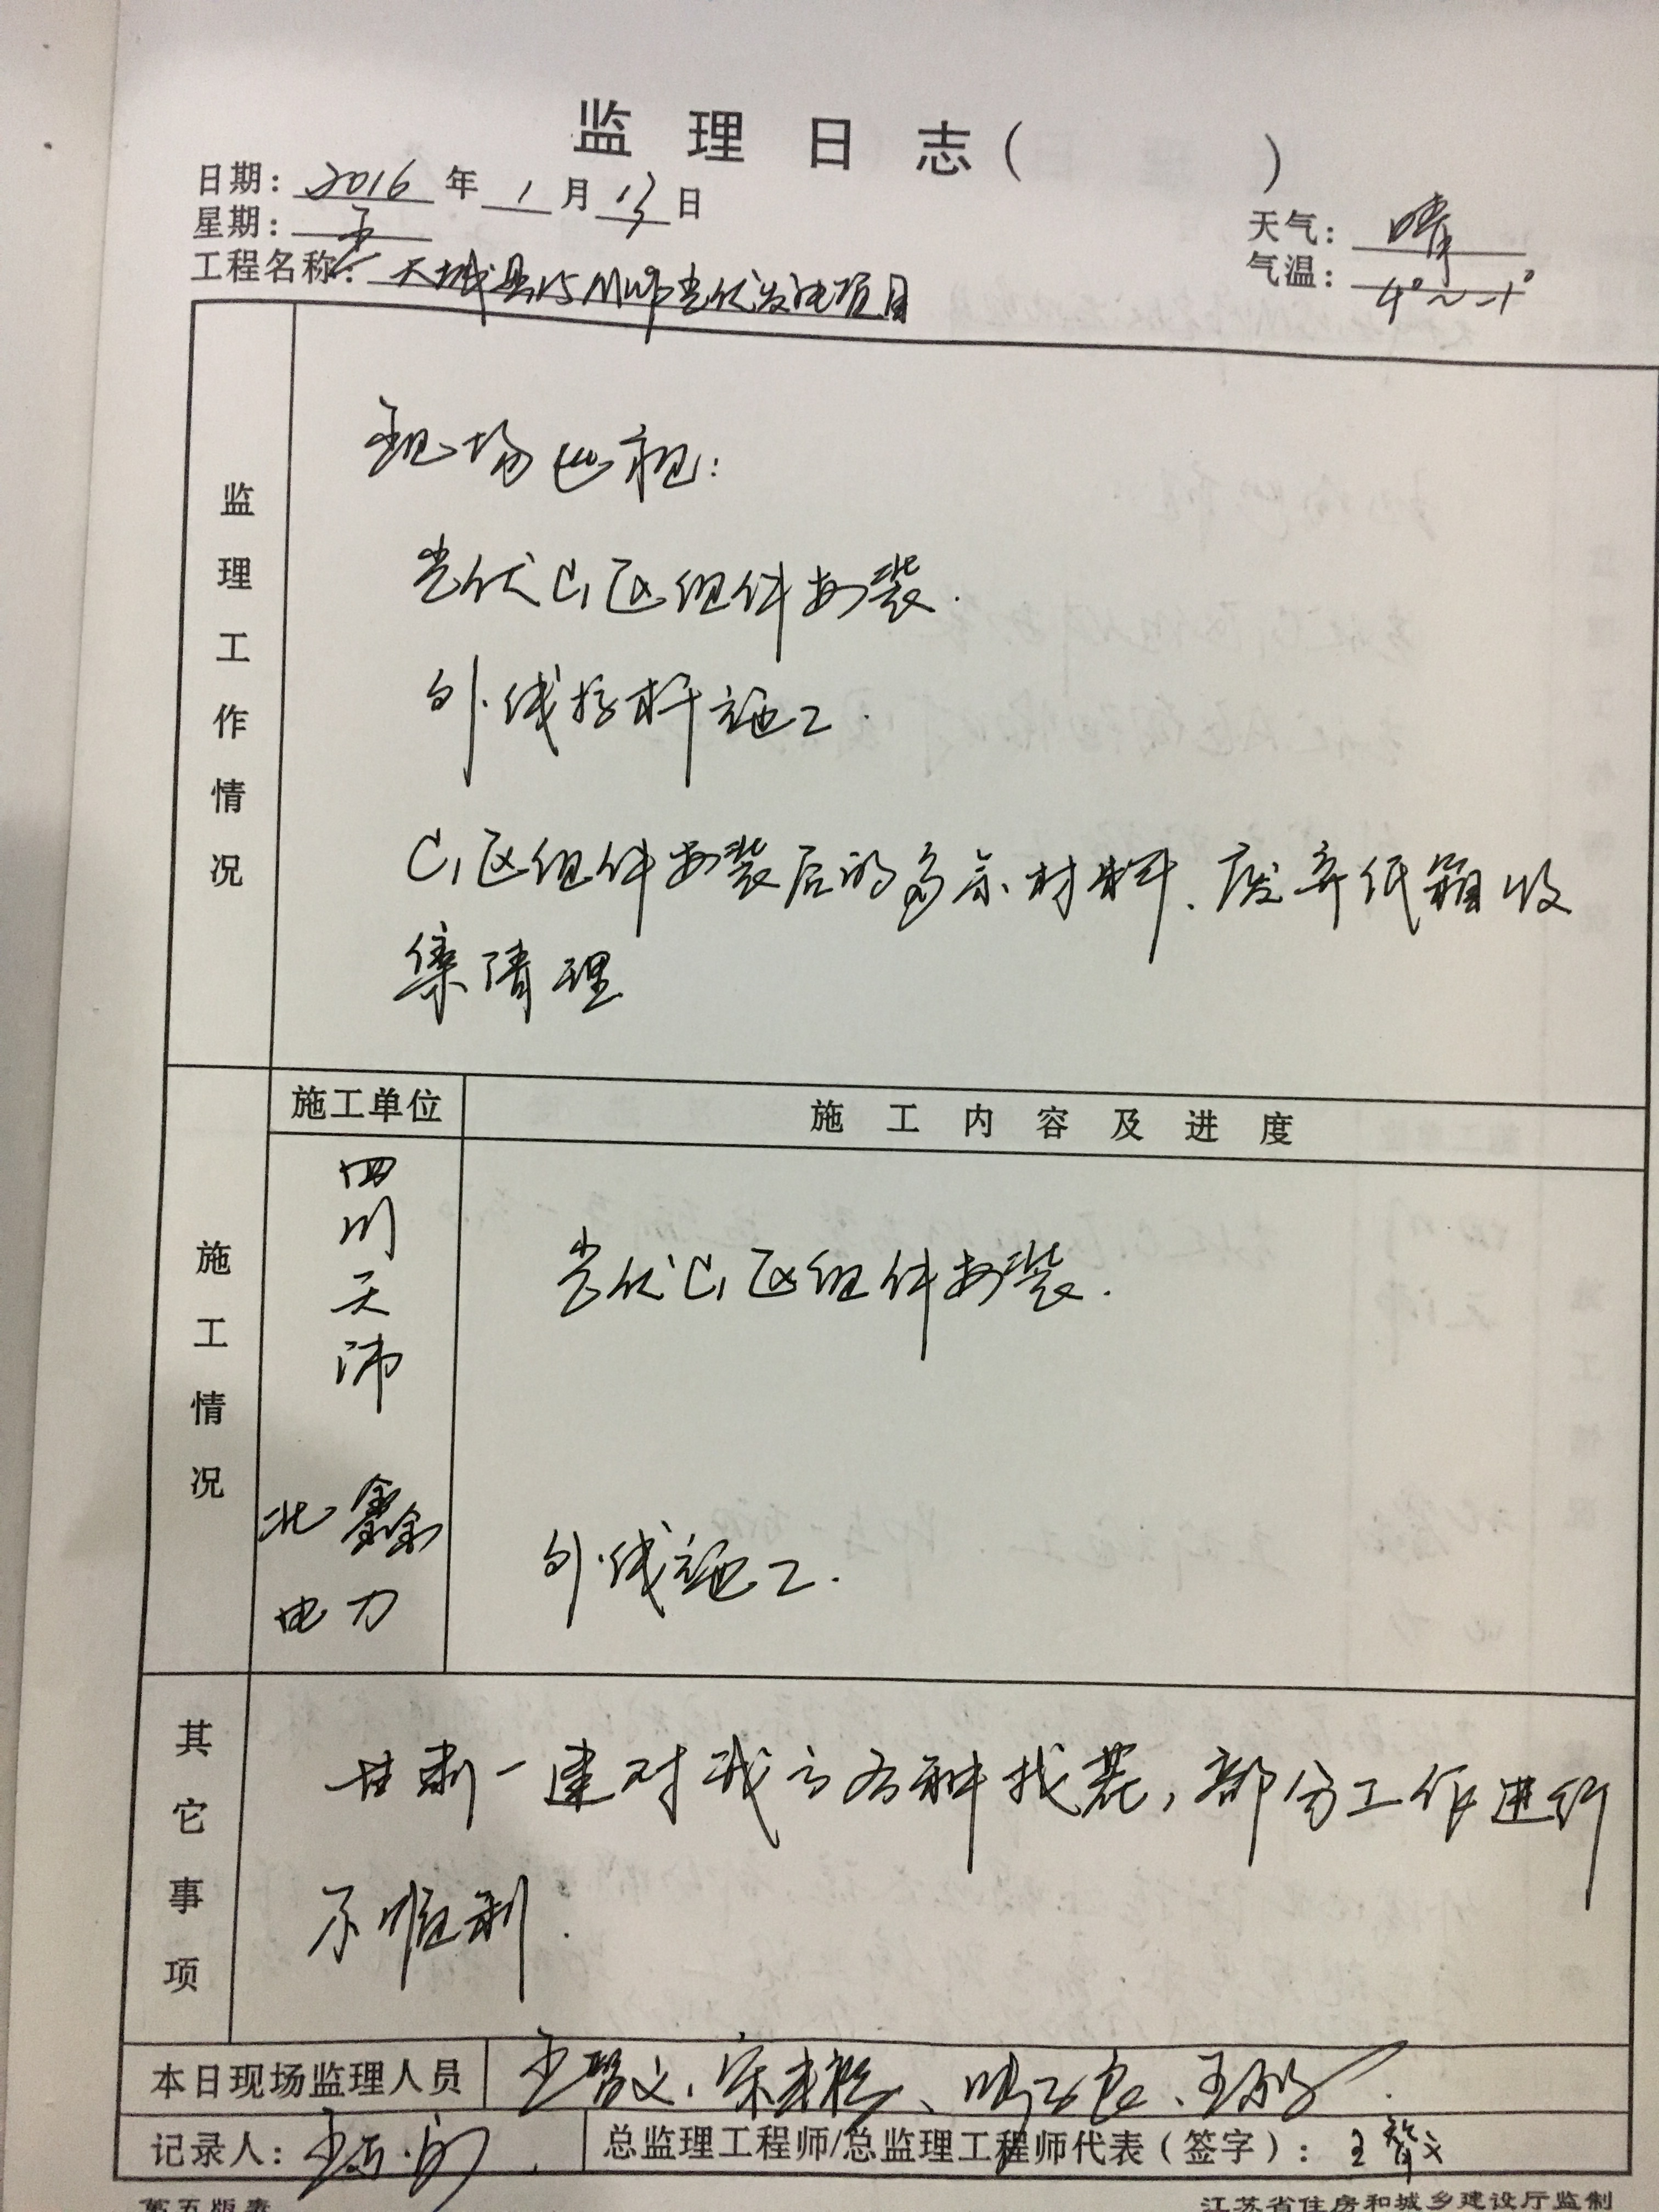 监理日志（ ）
日期：2016年1月13日
星期：五
天气：晴
工程名称：天城县15MWp光伏发电项目
气温：4°~-1°
监理工作情况
现场巡视：
光伏C1区组件安装.
外线拉杆施工.
C1区组件安装后的多余材料、废弃纸箱收
集清理
施工情况
施工单位 施工内容及进度
四川天沛 光伏C1区组件安装.
北鑫电力 外线施工.
其它事项
甘肃一建对我方各种找茬，部分工作进行
不顺利.
本日现场监理人员 王智文、宋
记录人：王
总监理工程师/总监理工程师代表（签字）：王智文
第五版表
江苏省住房和城乡建设厅监制